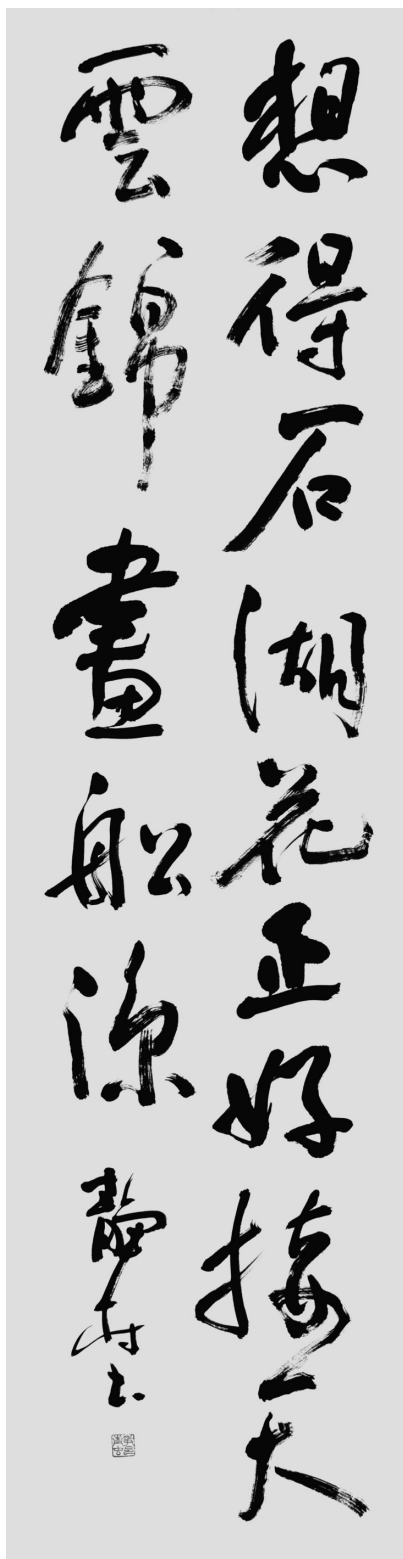 想得石湖花正好接天
雲錦畫船涼
靜村书